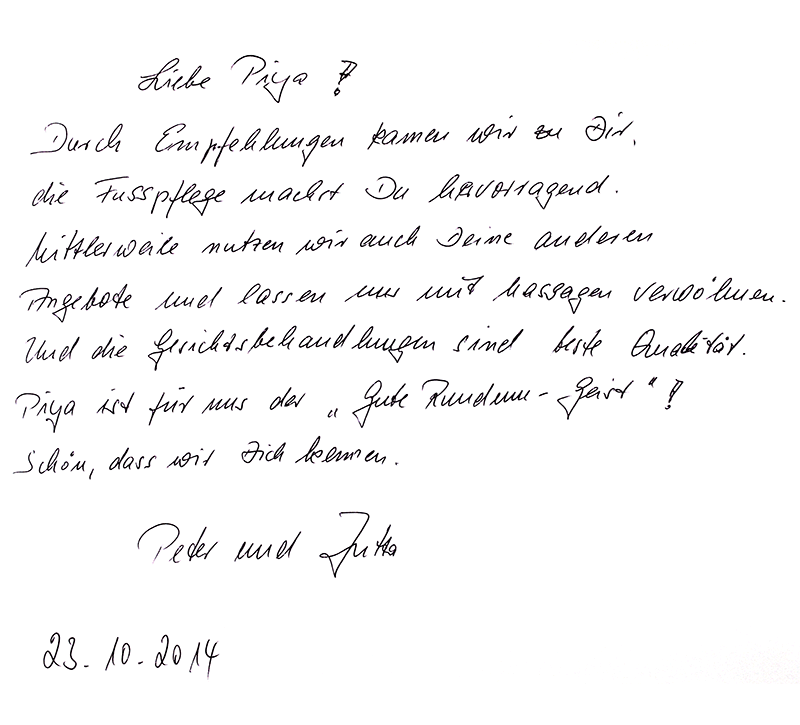 Liebe Piya !
Durch Empfehlungen kamen wir zu Dir,
die Fusspflege machst Du hervorragend.
Mittlerweile nutzen wir auch Deine anderen
Angebote und lassen uns mit Massagen verwöhnen.
Und die Gesichtsbehandlungen sind beste Qualität.
Piya ist für uns der „Gute Rundum-Geist" !
Schön, dass wir Dich kennen.
Peter und Jutta
23.10.2014